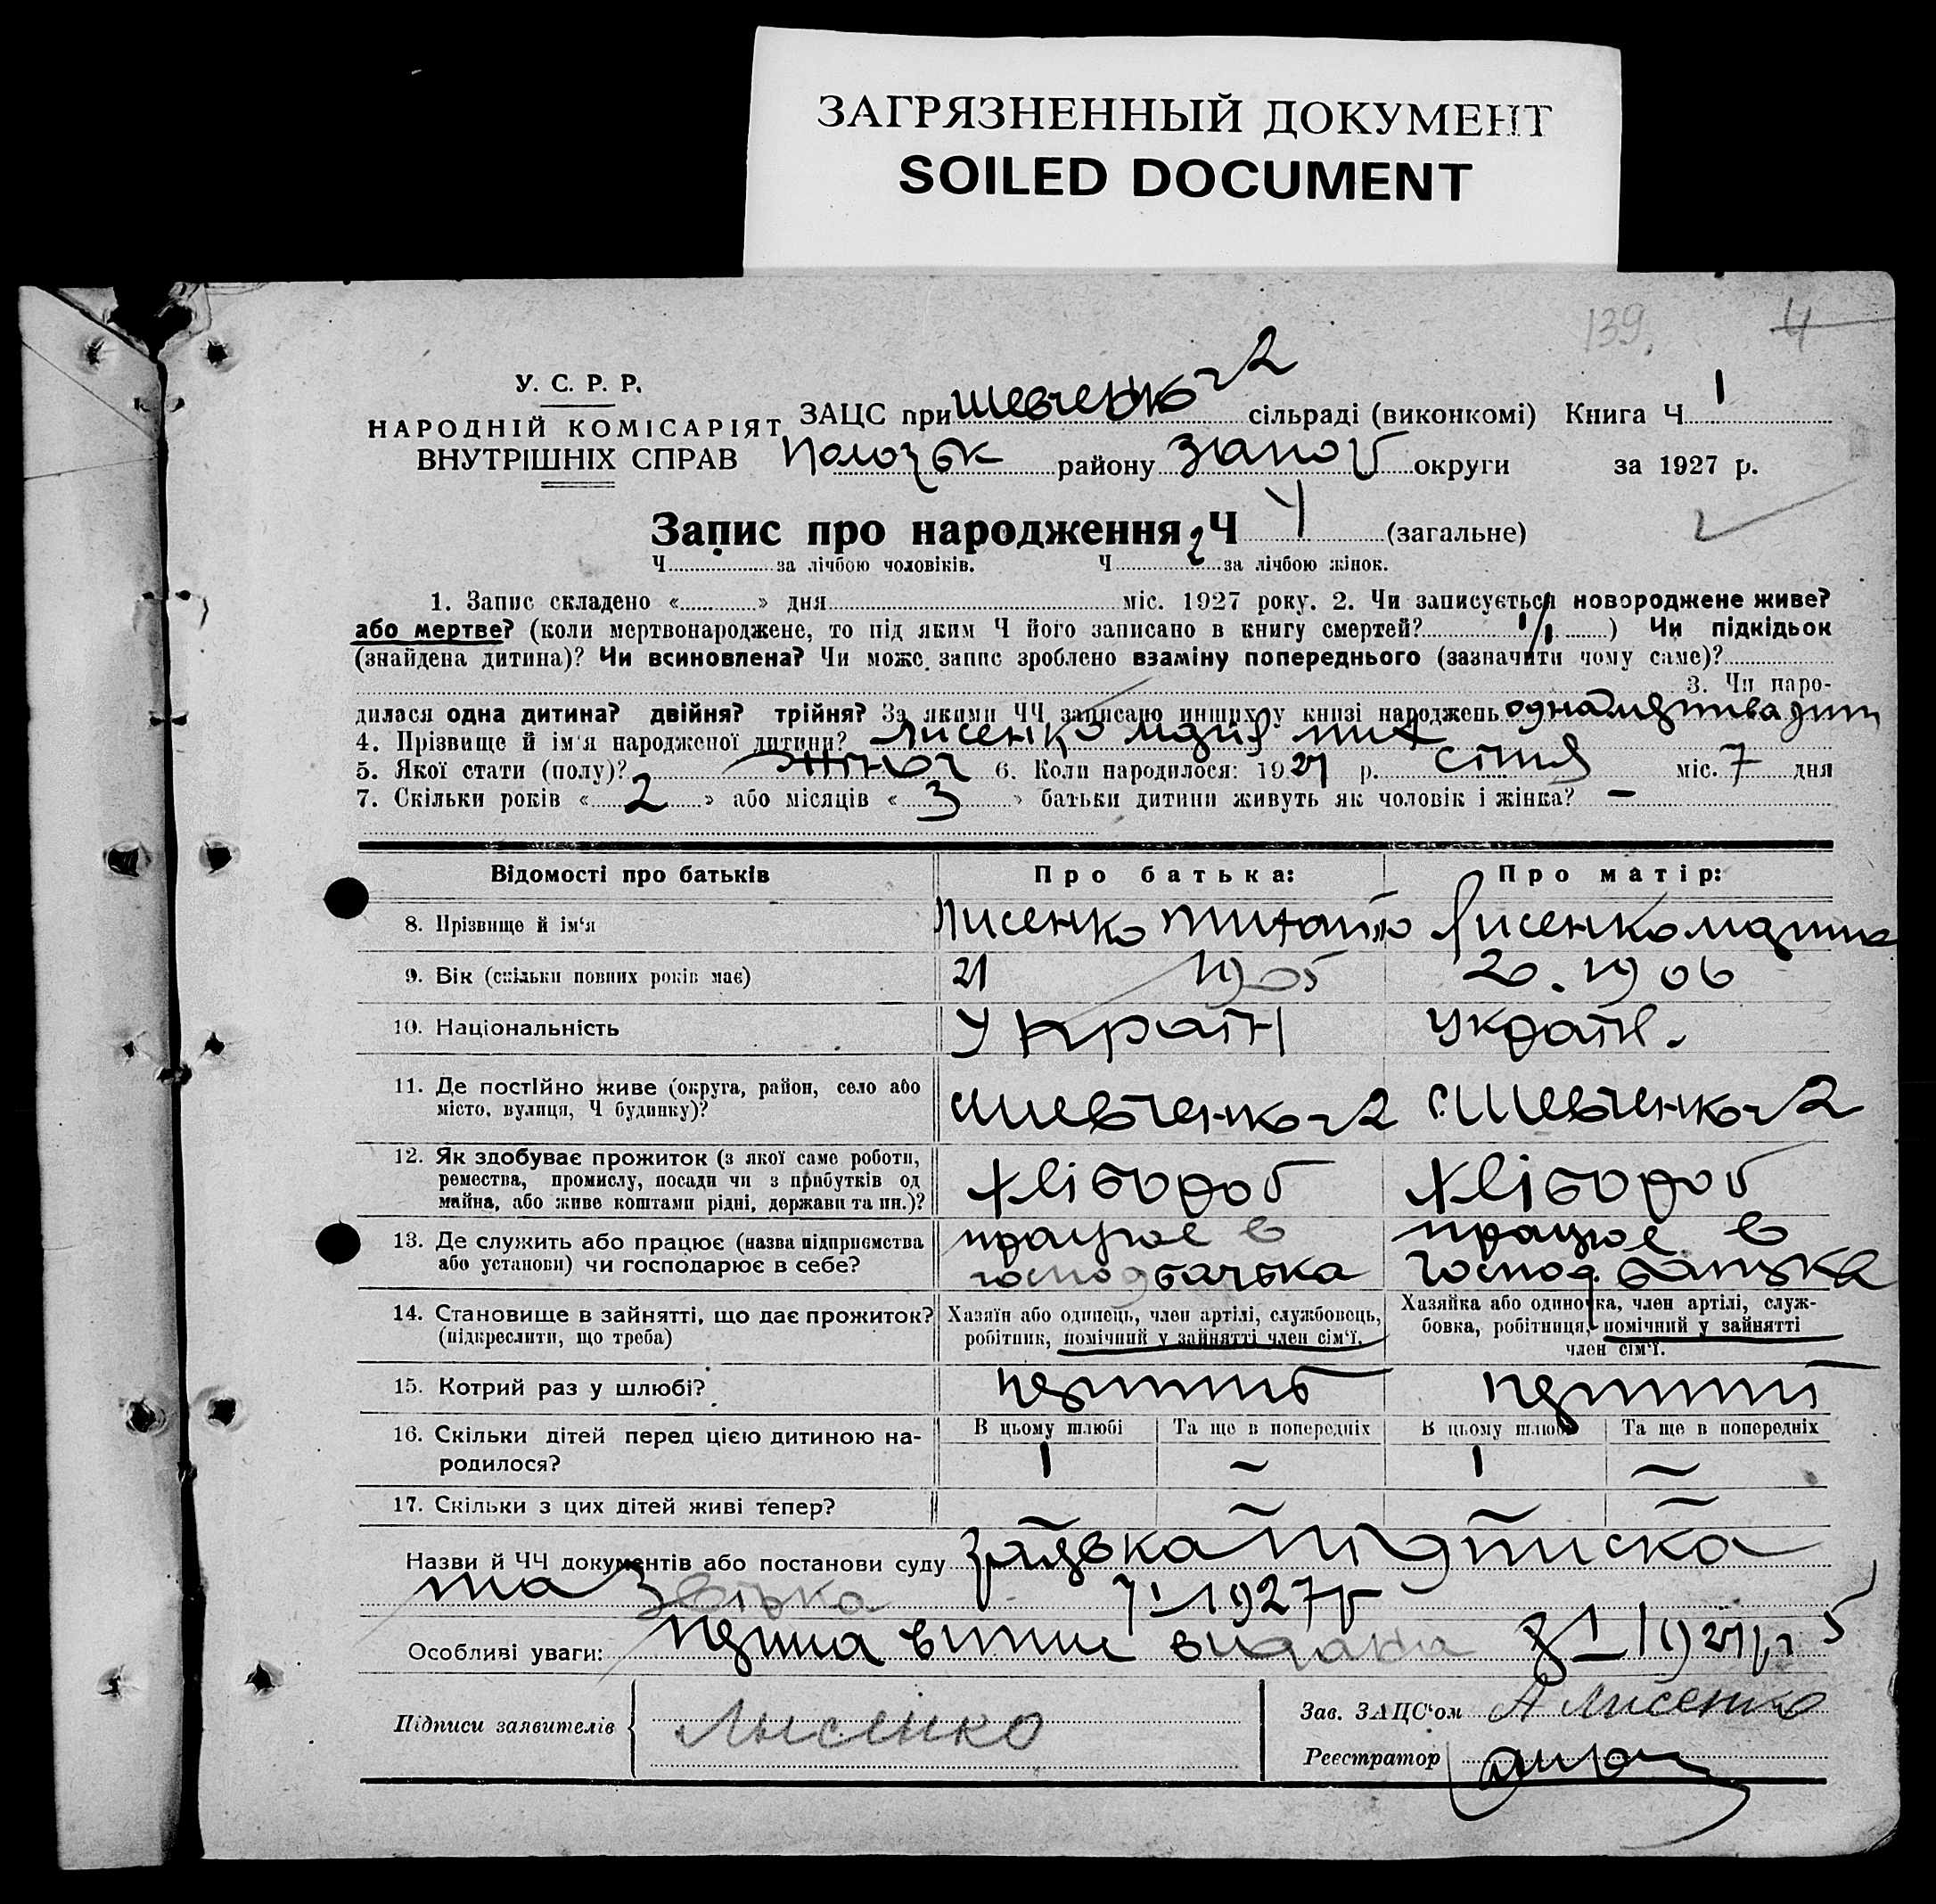 ЗАГРЯЗНЕННЫЙ ДОКУМЕНТ
SOILED DOCUMENT
139. 4
У. С. Р. Р.
НАРОДНІЙ КОМІСАРІЯТ
ВНУТРІШНІХ СПРАВ
ЗАЦС при Шевченко 2 сільраді (виконкомі) Книга Ч 1
району Запо округи за 1927 р.
Запис про народження Ч 4 (загальне)
Ч за лічбою чоловіків. Ч 2 за лічбою жінок.
1. Запис складено « » дня міс. 1927 року. 2. Чи записується новороджене живе?
або мертве? (коли мертвонароджене, то під яким Ч його записано в книгу смертей? ) Чи підкідьок
(знайдена дитина)? Чи всиновлена? Чи може запис зроблено взаміну попереднього (зазначити чому саме)?
3. Чи наро-
дилася одна дитина? двійня? трійня? За якими ЧЧ записано инших у книзі народжень одна
4. Прізвище й ім'я народженої дитини? Лисенко
5. Якої стати (полу)? 6. Коли народилося: 1927 р. січня міс. 7 дня
7. Скільки років « 2 » або місяців « 3 » батьки дитини живуть як чоловік і жінка? –
Відомості про батьків Про батька: Про матір:
8. Прізвище й ім'я Лисенко Лисенко
9. Вік (скільки повних років має) 21 1905 20. 1906
10. Національність Україн Україн.
11. Де постійно живе (округа, район, село або
місто, вулиця, Ч будинку)? Шевченко 2 с. Шевченко 2
12. Як здобуває прожиток (з якої саме роботи,
ремества, промислу, посади чи з прибутків од
майна, або живе коштами рідні, держави та ин.)? хлібороб хлібороб
13. Де служить або працює (назва підприємства
або установи) чи господарює в себе?
працює в
господ батька
працює в
господ. батька
14. Становище в зайнятті, що дає прожиток?
(підкреслити, що треба)
Хазяїн або одинець, член артілі, службовець,
робітник, помічний у зайнятті член сім'ї.
Хазяйка або одиночка, член артілі, служ-
бовка, робітниця, помічний у зайнятті
член сім'ї.
15. Котрий раз у шлюбі?
16. Скільки дітей перед цією дитиною на-
родилося?
В цьому шлюбі Та ще в попередніх В цьому шлюбі Та ще в попередніх
1 – 1 –
17. Скільки з цих дітей живі тепер? – –
Назви й ЧЧ документів або постанови суду
та 7 I 1927 р
Особливі уваги: видана 8 I 1927 р. 5
Підписи заявителів Лысенко
Зав. ЗАЦС'ом А Лисенко
Реєстратор